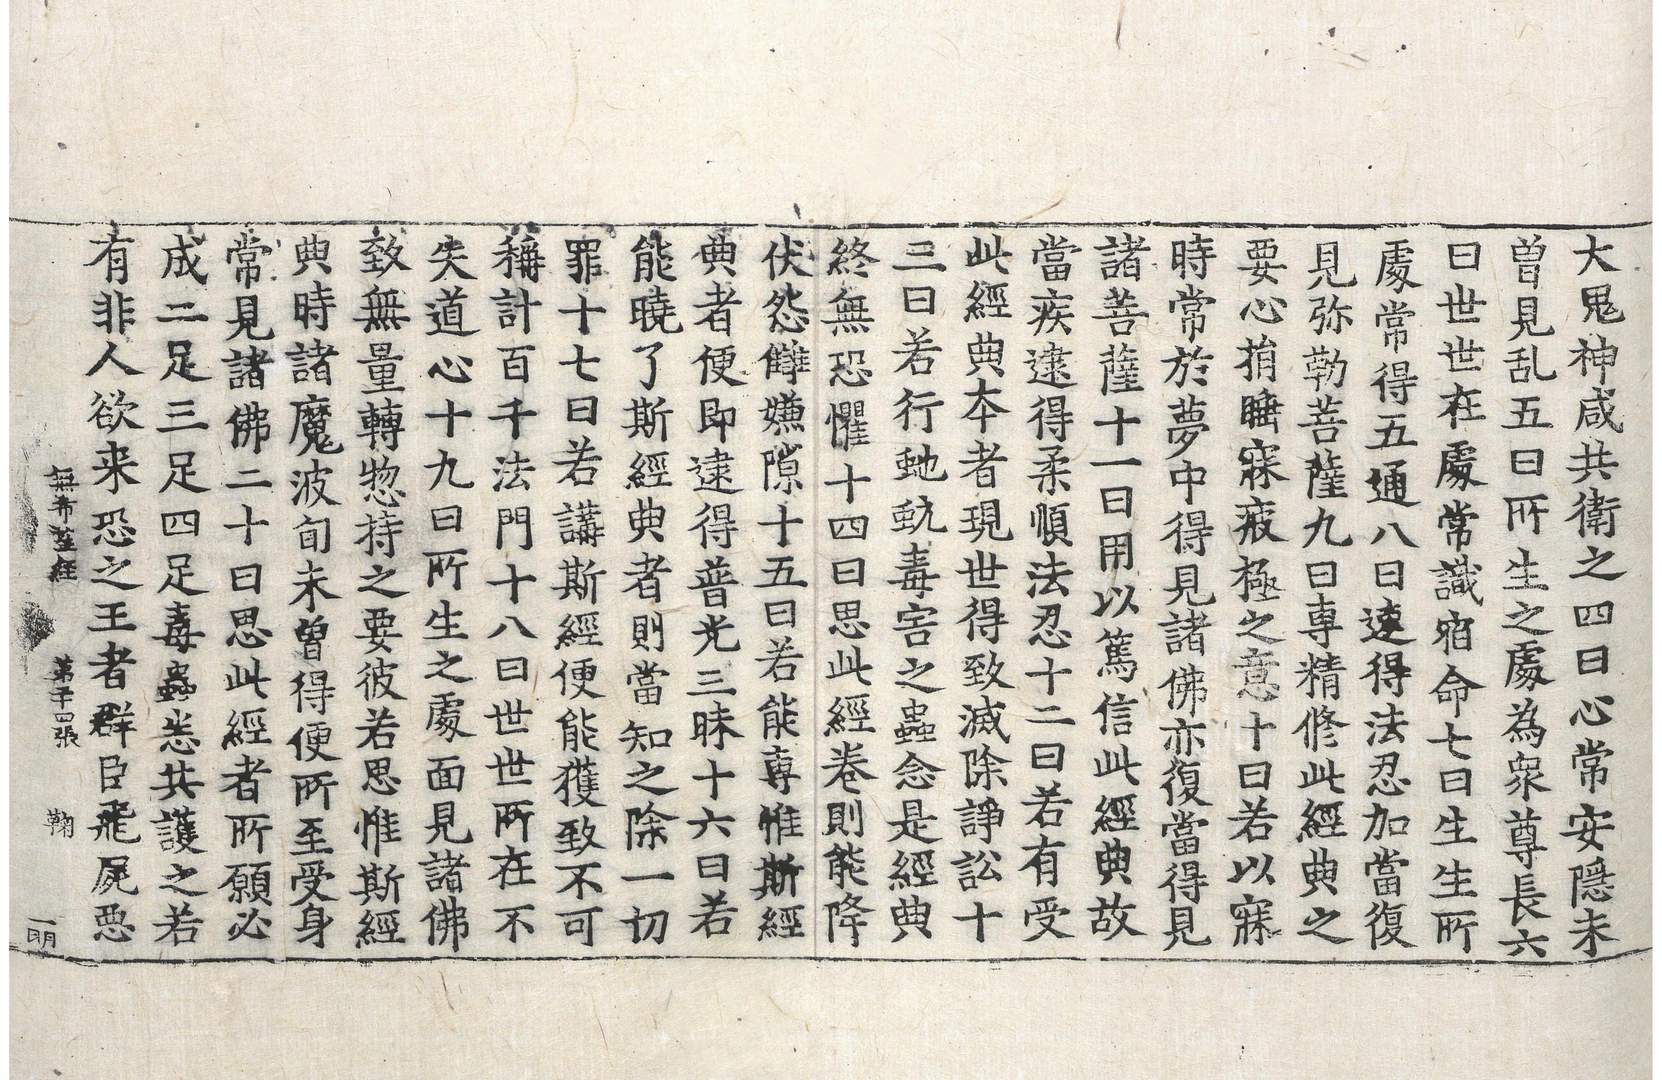 大鬼神咸共衛之四曰心常安隱未
曾見乱五曰所生之處為衆尊長六
曰世世在處常識宿命七曰生生所
處常得五通八曰逮得法忍加當復
見弥勒菩薩九曰専精修此經典之
要心捎睡寐疲極之意十曰若以寐
時常於夢中得見諸佛亦復當得見
諸菩薩十一曰用以篤信此經典故
當疾逮得柔順法忍十二曰若有受
此經典本者現世得致滅除諍訟十
三曰若行虵蚖毒害之蟲念是經典
終無恐懼十四曰思此經卷則能降
伏怨讎嫌隙十五曰若能専惟斯經
典者便即逮得普光三昧十六曰若
能曉了斯經典者則當知之除一切
罪十七曰若講斯經便能獲致不可
稱計百千法門十八曰世世所在不
失道心十九曰所生之處面見諸佛
致無量轉惣持之要彼若思惟斯經
典時諸魔波旬未曾得便所至受身
常見諸佛二十曰思此經者所願必
成二足三足四足毒蟲悉共護之若
有非人欲来恐之王者群臣飛屍惡
無希望經 第十四張 鞠 一明